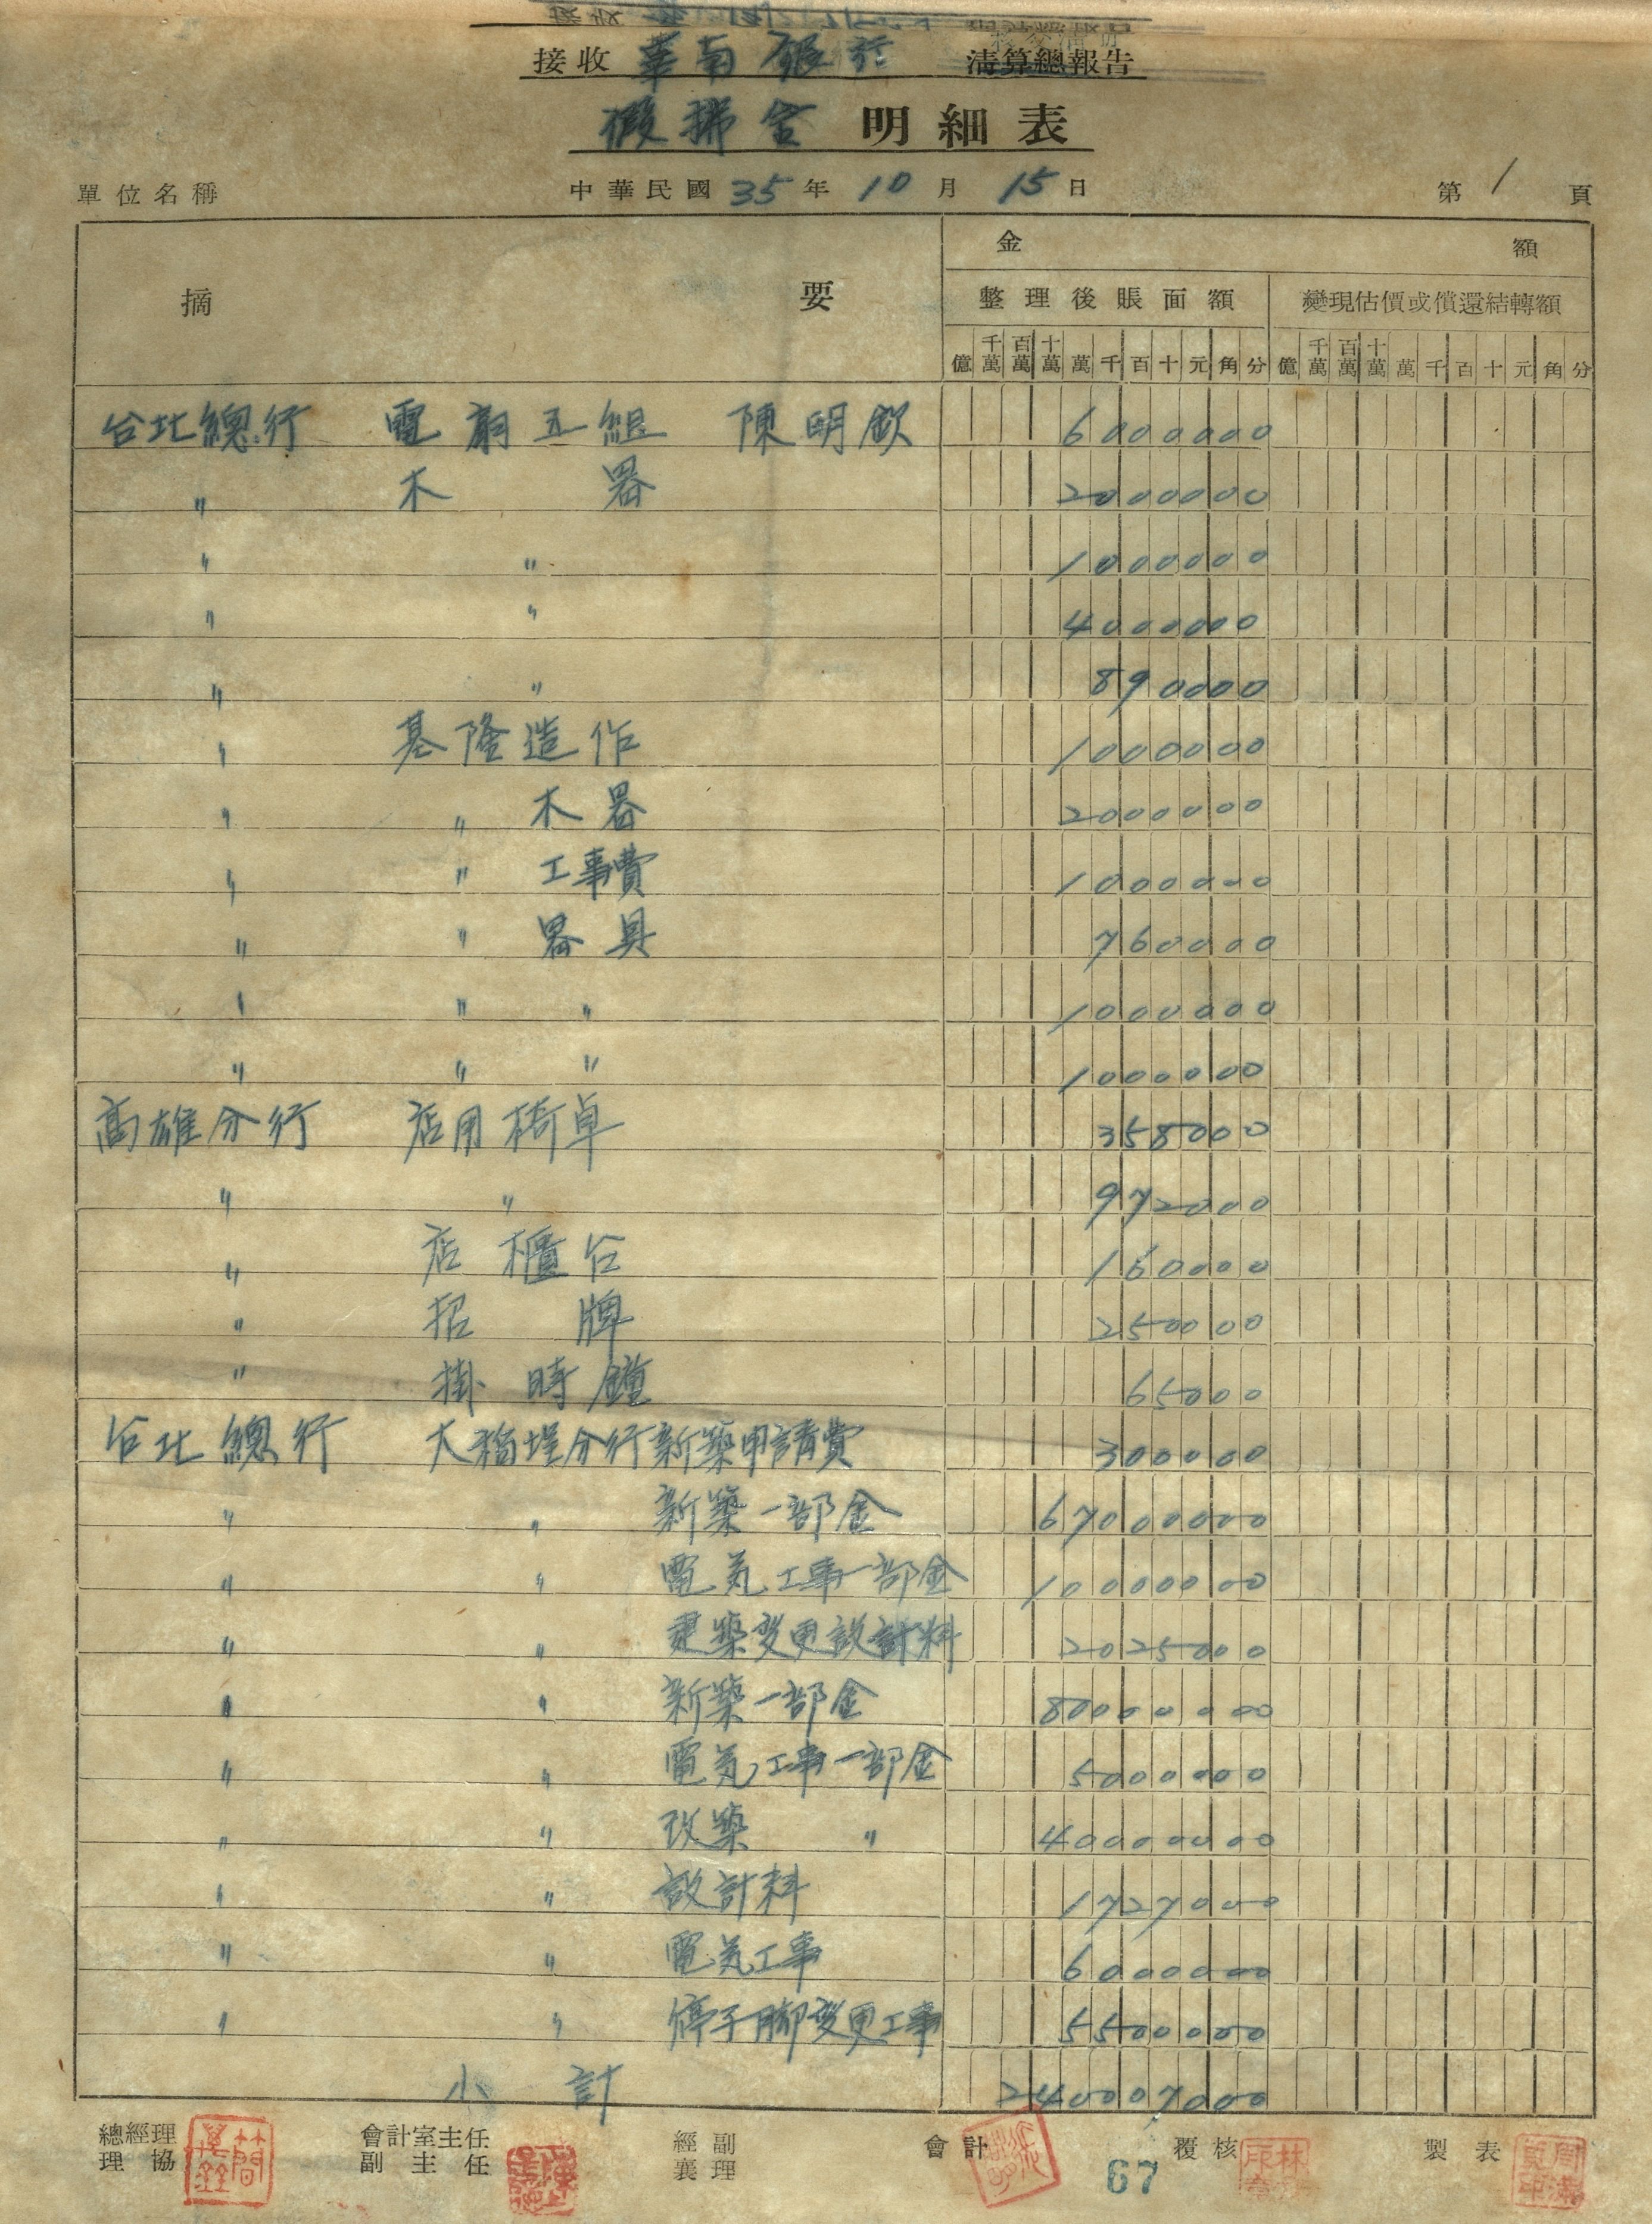 接收 華南銀行 清算總報告
假拂金 明細表
單位名稱 中華民國35年10月15日 第1頁
摘要 金額
整理後賬面額 變現估價或償還結轉額
億 千萬 百萬 十萬 萬 千 百 十 元 角 分 億 千萬 百萬 十萬 萬 千 百 十 元 角 分
台北總行 電扇五組 陳明欽 6000000
〃 木器 2000000
〃 〃 1000000
〃 〃 4000000
〃 〃 890000
〃 基隆造作 1000000
〃 〃 木器 2000000
〃 〃 工事費 1000000
〃 〃 器具 760000
〃 〃 〃 1000000
〃 〃 〃 1000000
高雄分行 店用椅卓 358000
〃 〃 972000
〃 店櫃台 160000
〃 招牌 250000
〃 掛時鐘 65000
台北總行 大稻埕分行新築申請費 300000
〃 〃 新築一部金 67000000
〃 〃 電気工事一部金 10000000
〃 〃 建築変更設計料 2025000
〃 〃 新築一部金 80000000
〃 〃 電気工事一部金 5000000
〃 〃 改築 〃 40000000
〃 〃 設計料 1727000
〃 〃 電気工事 6000000
〃 〃 停子脚変更工事 5500000
小計 240007000
總經理 會計室主任 經副 會計 覆核 製表
理協 副主任 襄理
67